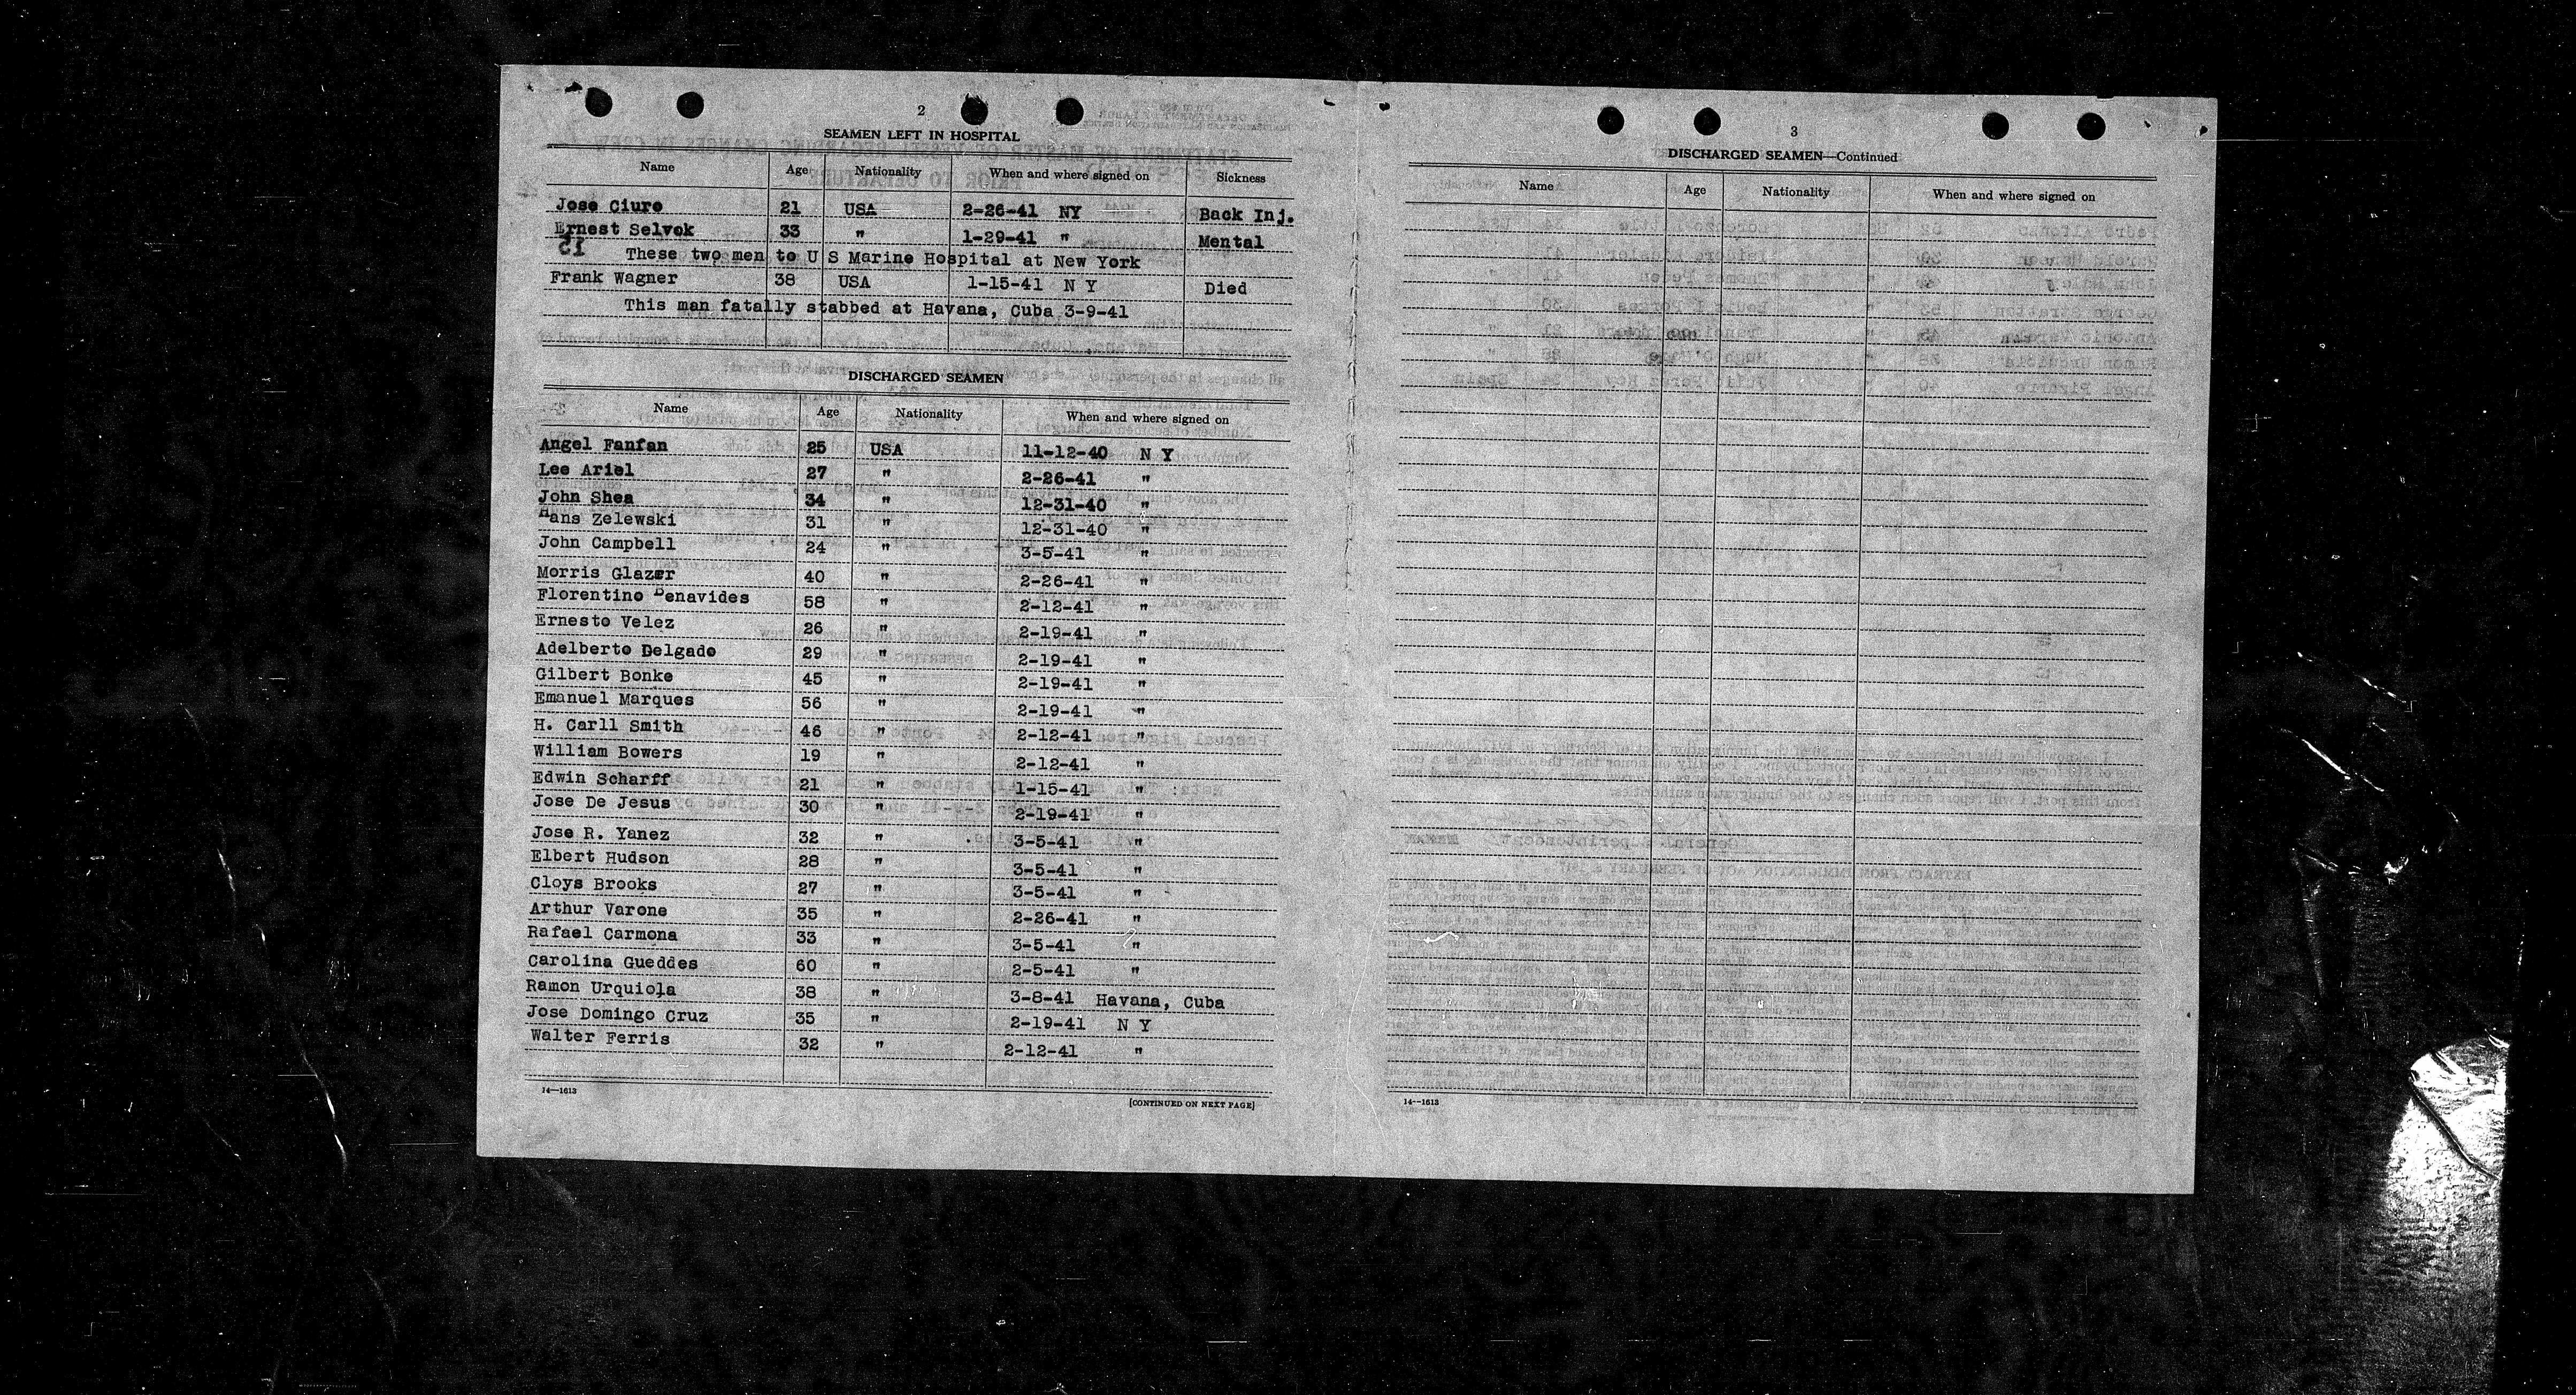 2
SEAMEN LEFT IN HOSPITAL
Name Age Nationality When and where signed on Sickness
Jose Ciuro 21 USA 2-26-41 NY Back Inj.
Ernest Selvek 33 " 1-29-41 " Mental
These two men to U S Marine Hospital at New York
Frank Wagner 38 USA 1-15-41 N Y Died
This man fatally stabbed at Havana, Cuba 3-9-41
DISCHARGED SEAMEN
Name Age Nationality When and where signed on
Angel Fanfan 25 USA 11-12-40 N Y
Lee Ariel 27 " 2-26-41 "
John Shea 34 " 12-31-40 "
Hans Zelewski 31 " 12-31-40 "
John Campbell 24 " 3-5-41 "
Morris Glazer 40 " 2-26-41 "
Florentino Benavides 58 " 2-12-41 "
Ernesto Velez 26 " 2-19-41 "
Adelberto Delgado 29 " 2-19-41 "
Gilbert Bonke 45 " 2-19-41 "
Emanuel Marques 56 " 2-19-41 "
H. Carll Smith 46 " 2-12-41 "
William Bowers 19 " 2-12-41 "
Edwin Scharff 21 " 1-15-41 "
Jose De Jesus 30 " 2-19-41 "
Jose R. Yanez 32 " 3-5-41 "
Elbert Hudson 28 " 3-5-41 "
Cloys Brooks 27 " 3-5-41 "
Arthur Varone 35 " 2-26-41 "
Rafael Carmona 33 " 3-5-41 "
Carolina Gueddes 60 " 2-5-41 "
Ramon Urquiola 38 " 3-8-41 Havana, Cuba
Jose Domingo Cruz 35 " 2-19-41 N Y
Walter Ferris 32 " 2-12-41 "
14—1613
[CONTINUED ON NEXT PAGE]
3
DISCHARGED SEAMEN—Continued
Name Age Nationality When and where signed on
14—1613